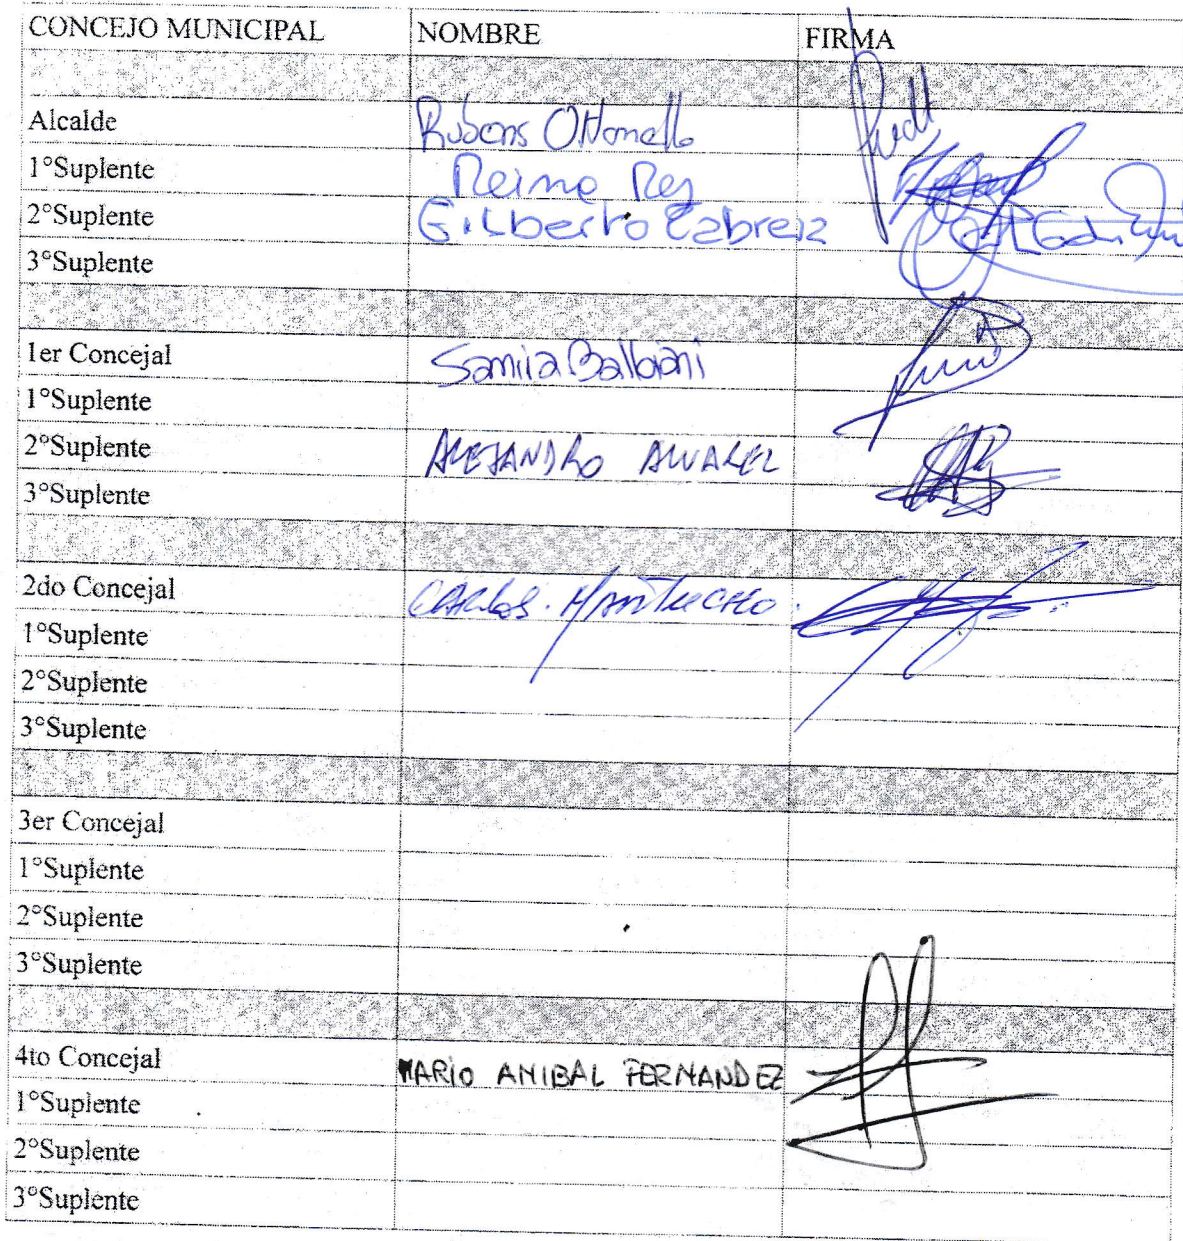 CONCEJO MUNICIPAL NOMBRE FIRMA
Alcalde Rubens Ottonello
1°Suplente Reime Rey
2°Suplente GiLberto Cabrera
3°Suplente
1er Concejal Samira Balbiani
1°Suplente
2°Suplente ALEJANDRO ALVAREZ
3°Suplente
2do Concejal CARLOS
1°Suplente
2°Suplente
3°Suplente
3er Concejal
1°Suplente
2°Suplente
3°Suplente
4to Concejal MARIO ANIBAL FERNANDEZ
1°Suplente
2°Suplente
3°Suplente